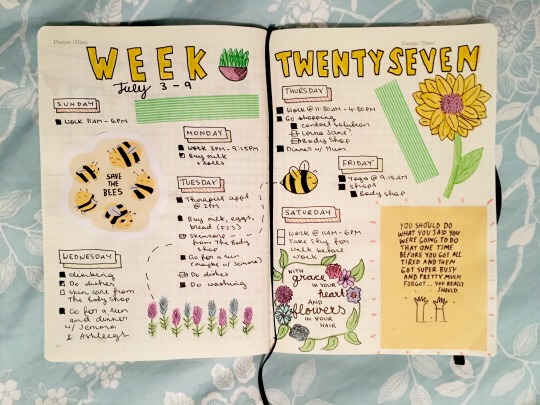 Datum/Date:
WEEK
July 3-9
SUNDAY
Work 11AM-6PM
SAVE
THE
BEES
MONDAY
Work 3PM-9:15PM
Buy milk
+ rolls
TUESDAY
Therapist appt
@ 2PM
Buy milk, eggs,
bread
Skincare
from The Body
Shop
Go for a run
(maybe w/ Jemora)
Do dishes
Do washing
WEDNESDAY
climbing
Do dishes
Skin care from
The Body Shop
Go for a run
and dinner
w/ Jemora
& Ashleigh
Datum/Date:
TWENTYSEVEN
THURSDAY
Work @ 11:30AM-4:30PM
Go shopping
contact solution
Body Shop
Dinner w/ Mum
FRIDAY
Yoga @ 9:15AM
Shops
Body Shop
SATURDAY
Work @ 11AM-6PM
Take Stig for
walk before
work
WITH
grace
IN YOUR
heart
AND
flowers
IN YOUR
HAIR
YOU SHOULD DO
WHAT YOU SAID YOU
WERE GOING TO DO
THAT ONE TIME
BEFORE YOU GOT ALL
TIRED AND THEN
GOT SUPER BUSY
AND PRETTY MUCH
FORGOT... YOU REALLY
SHOULD.